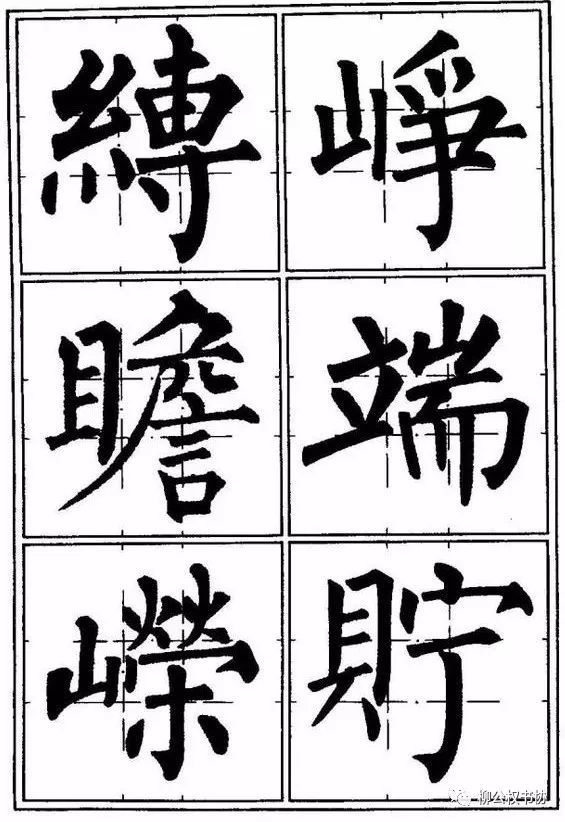 崢端貯
縛瞻嶸
柳公权书协